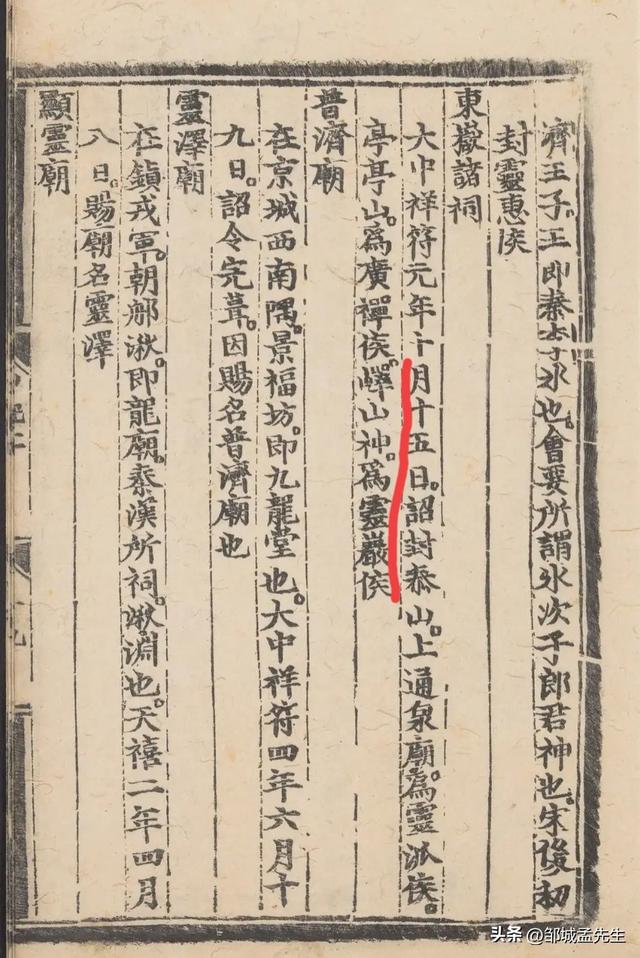 濟王子。王即秦李冰也。會要所謂冰次子郎君神也。宋後初
封靈惠侯
東嶽諸祠
大中祥符元年十月十五日。詔封泰山。上通泉廟。為靈派侯。
亭亭山。為廣禪侯。嶧山神。為靈巖侯
普濟廟
在京城西南隅。景福坊。即九龍堂也。大中祥符四年六月十
九日。詔令完葺。因賜名普濟廟也
靈澤廟
在鎮戎軍。朝𨙻湫。即龍廟。秦漢所祠。湫淵也。天禧二年四月
八日。賜廟名靈澤
顯靈廟
头条 @邹城孟先生